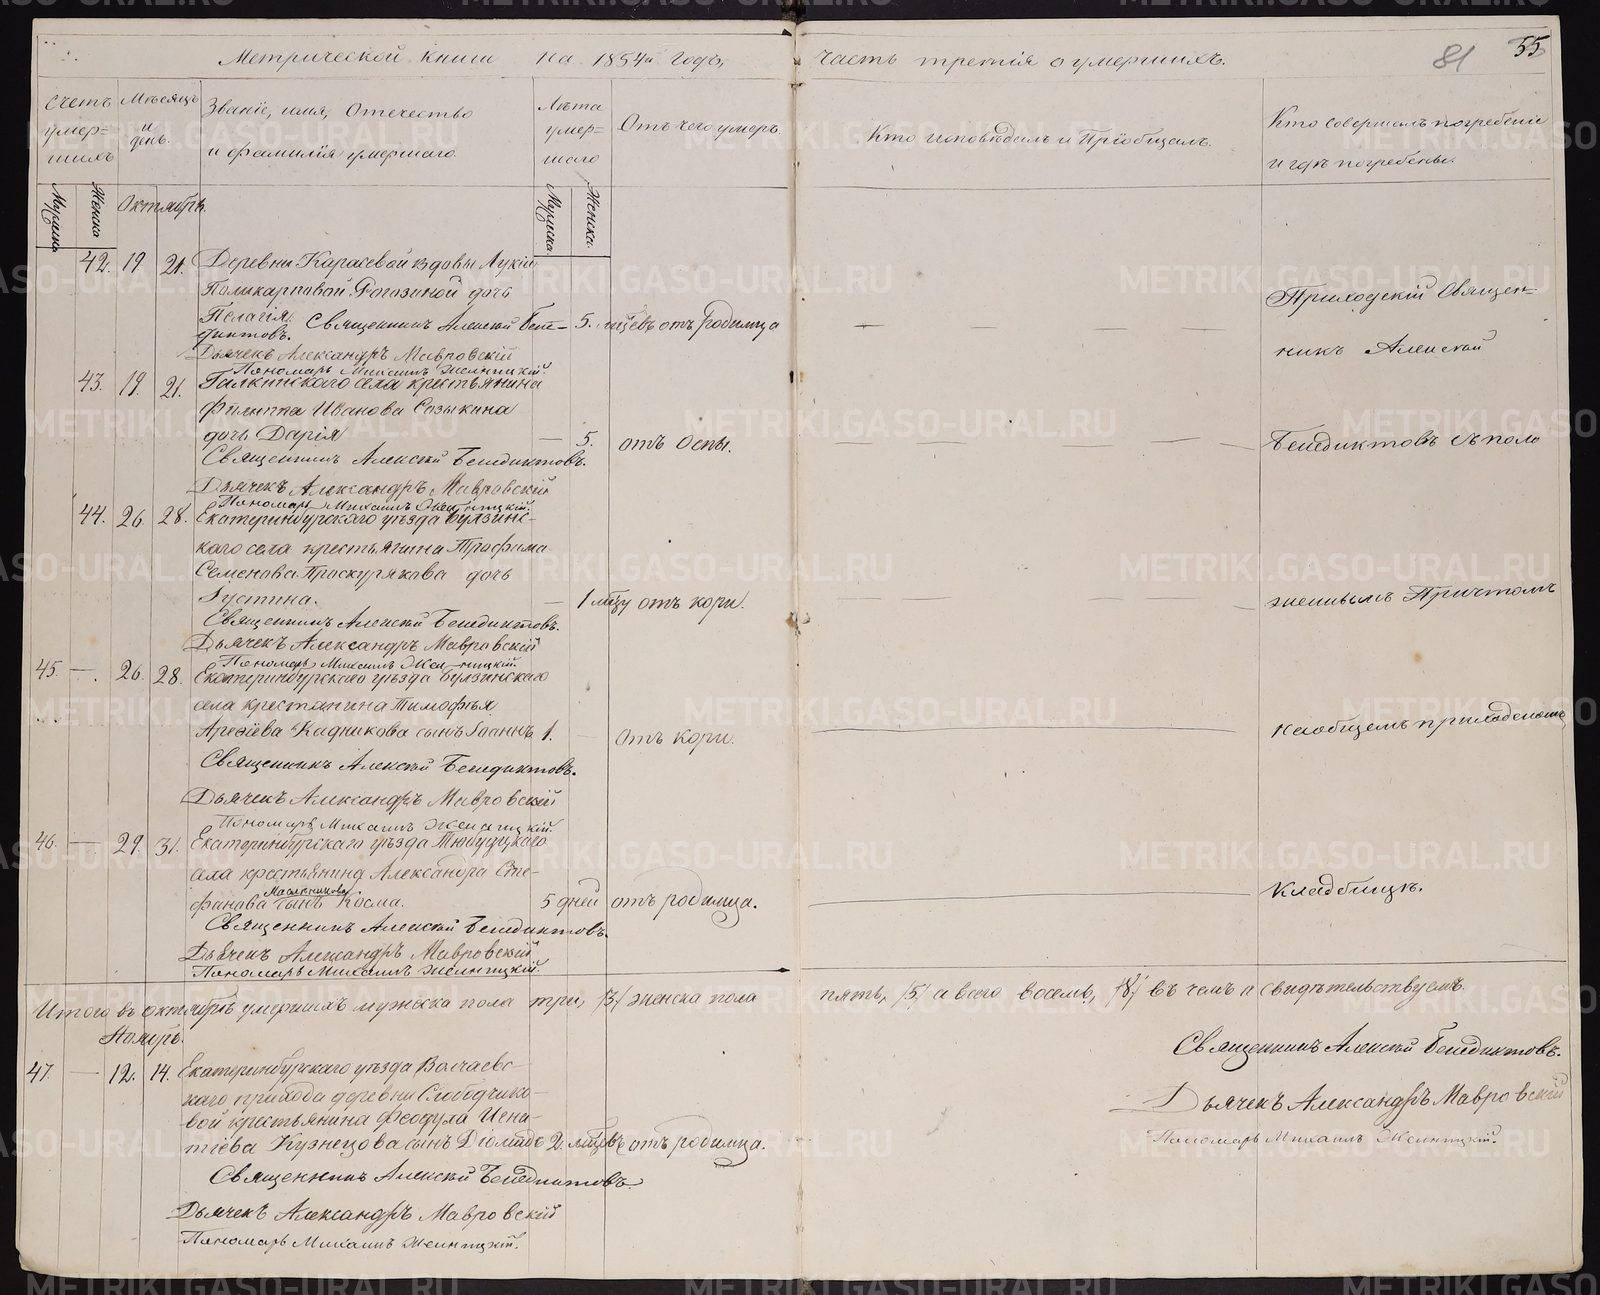 Метрической книги на 1854й Годъ, часть третія о умершихъ.
81 55
Счетъ умер=шихъ
Мѣсяцъ и день.
Званіе, имя, Отечество и фамилія умершаго.
Лѣта умер=шаго
Отъ чего умеръ.
Кто исповѣдалъ и Пріобщалъ.
Кто совершалъ погребеніе и гдѣ погребены.
Мужска Женска Октябрь. Мужска Женска.
42. 19 21. Деревни Карасевой вдовы Лукіи
Поликарповой Рогозиной дочь
Пелагія. Священникъ Алексѣй Бене= 5. мѣсцевъ отъ родимца
диктовъ.
Дьячекъ Александръ Мавровскій
Пономарь Михаилъ
43. 19. 21. села крестьянина
Филиппа Иванова Созыкина
дочь Дарія — 5. отъ Оспы.
Священникъ Алексѣй Бенедиктовъ.
Дьячекъ Александръ Мавровскій
Пономарь Михаилъ
44. 26. 28. Екатеринбургскаго уѣзда Булзинс-
каго села крестьянина Трофима
Семенова Проскурякова дочь
Іустина. — 1 мѣсцу отъ кори.
Священникъ Алексѣй Бенедиктовъ.
Дьячекъ Александръ Мавровскій
Пономарь Михаилъ
45. — 26. 28. Екатеринбургскаго уѣзда Булзинскаго
села крестянина Тимофѣя
Кадникова сынъ Іоаннъ 1. — отъ кори.
Священникъ Алексѣй Бенедиктовъ.
Дьячекъ Александръ Мавровскій
Пономарь Михаилъ
46. — 29. 31. Екатеринбургскаго уѣзда Тюбукскаго
села крестьянина Александра Сте-
Масленикова
фанова сынъ Косма. 5 дней отъ родимца.
Священникъ Алексѣй Бенедиктовъ.
Дьячекъ Александръ Мавровскій
Пономарь Михаилъ
Приходскій Священ=
никъ Алексѣй
Бенедиктовъ съ поло
женнымъ Причтомъ
на общемъ приходскомъ
кладбищѣ.
Итого въ октябрѣ умершихъ мужска пола три, /3/ женска пола пять, /5/ а всего восемь, /8/ въ чемъ и свидѣтельствуемъ.
Священникъ Алексѣй Бенедиктовъ.
Дьячекъ Александръ Мавровскій
Пономарь Михаилъ
Ноябрь.
47. — 12. 14. Екатеринбургскаго уѣзда
каго прихода деревни Слободчико-
вой крестьянина Феодула Игна-
тіева Кузнецова сынъ Діомидъ 2. мѣсцевъ отъ родимца.
Священникъ Алексѣй Бенедиктовъ.
Дьячекъ Александръ Мавровскій
Пономарь Михаилъ
METRIKI.GASO-URAL.RU